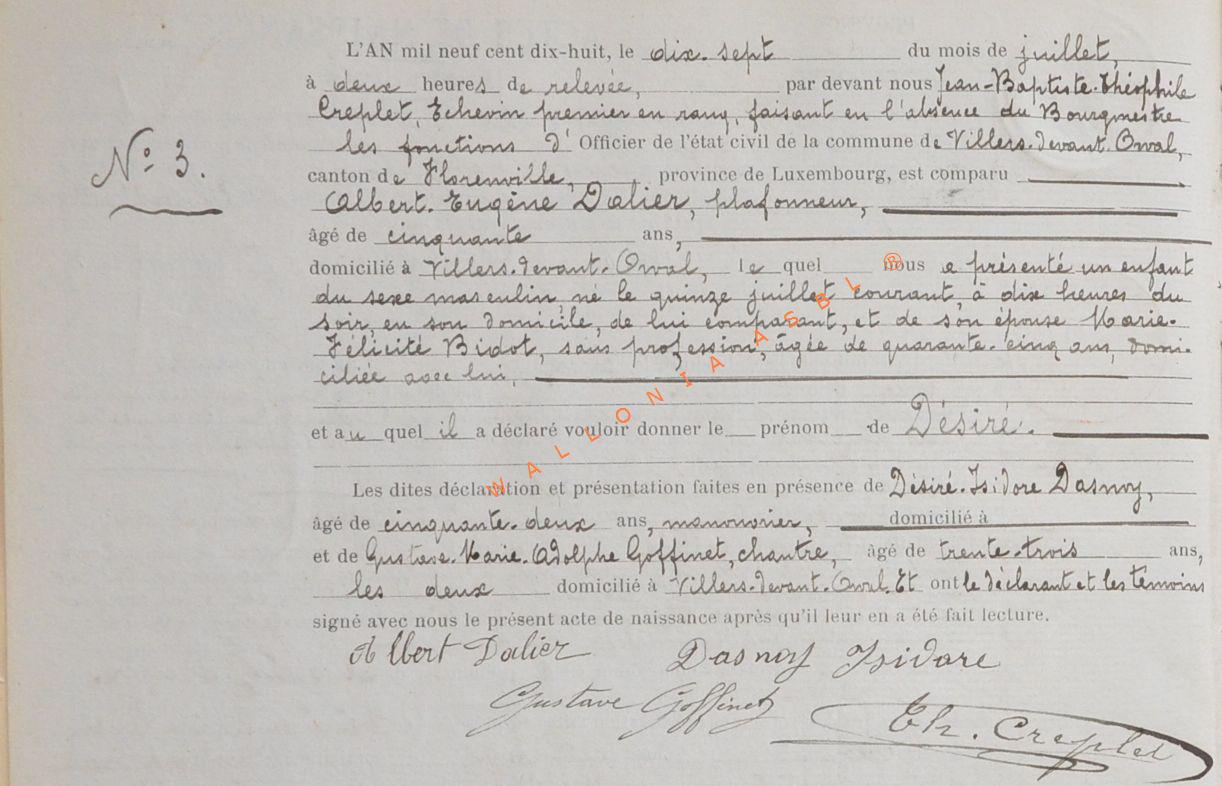 L'AN mil neuf cent dix-huit, le dix-sept du mois de juillet,
à deux heures de relevée, par devant nous Jean-Baptiste-Théophile
Creplet, Echevin premier en rang, faisant en l'absence du Bourgmestre
les fonctions d' Officier de l'état civil de la commune de Villers-devant-Orval,
N° 3.
canton de Florenville, province de Luxembourg, est comparu
Albert-Eugène Dalier, plafonneur,
âgé de cinquante ans,
domicilié à Villers-devant-Orval, le quel nous a présenté un enfant
du sexe masculin né le quinze juillet courant, à dix heures du
soir, en son domicile, de lui comparant, et de son épouse Marie-
Félicité Bidot, sans profession, âgée de quarante-cinq ans, domi-
ciliée avec lui,
et au quel il a déclaré vouloir donner le prénom de Désiré.
Les dites déclaration et présentation faites en présence de Désiré-Isidore Dasnoy,
âgé de cinquante-deux ans, manouvrier, domicilié à
et de Gustave-Marie-Adolphe Goffinet, chantre, âgé de trente-trois ans,
les deux domicilié à Villers-devant-Orval. Et ont le déclarant et les témoins
signé avec nous le présent acte de naissance après qu'il leur en a été fait lecture.
Albert Dalier Dasnoy Isidore
Gustave Goffinet
Th. Creplet
WALLONIA ASBL ®